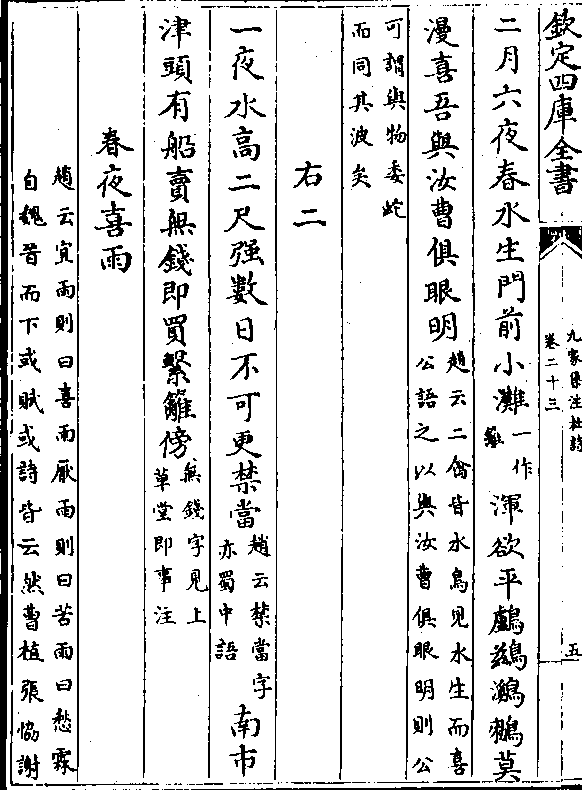 欽定四庫全書
九家集注杜詩
卷二十三
五
二月六夜春水生門前小灘一作
籬渾欲平鸕鷀鸂鶒莫
漫喜吾與汝曹俱眼明趙云二禽皆水鳥見水生而喜
公語之以與汝曹俱眼明則公
可謂與物委蛇
而同其波矣
右二
一夜水高二尺強數日不可更禁當趙云禁當字
亦蜀中語南市
津頭有船賣無錢即買繫籬傍無錢字見上
草堂即事注
春夜喜雨
趙云宜雨則曰喜雨厭雨則曰苦雨曰愁霖
自魏晉而下或賦或詩皆云然曹植張協謝